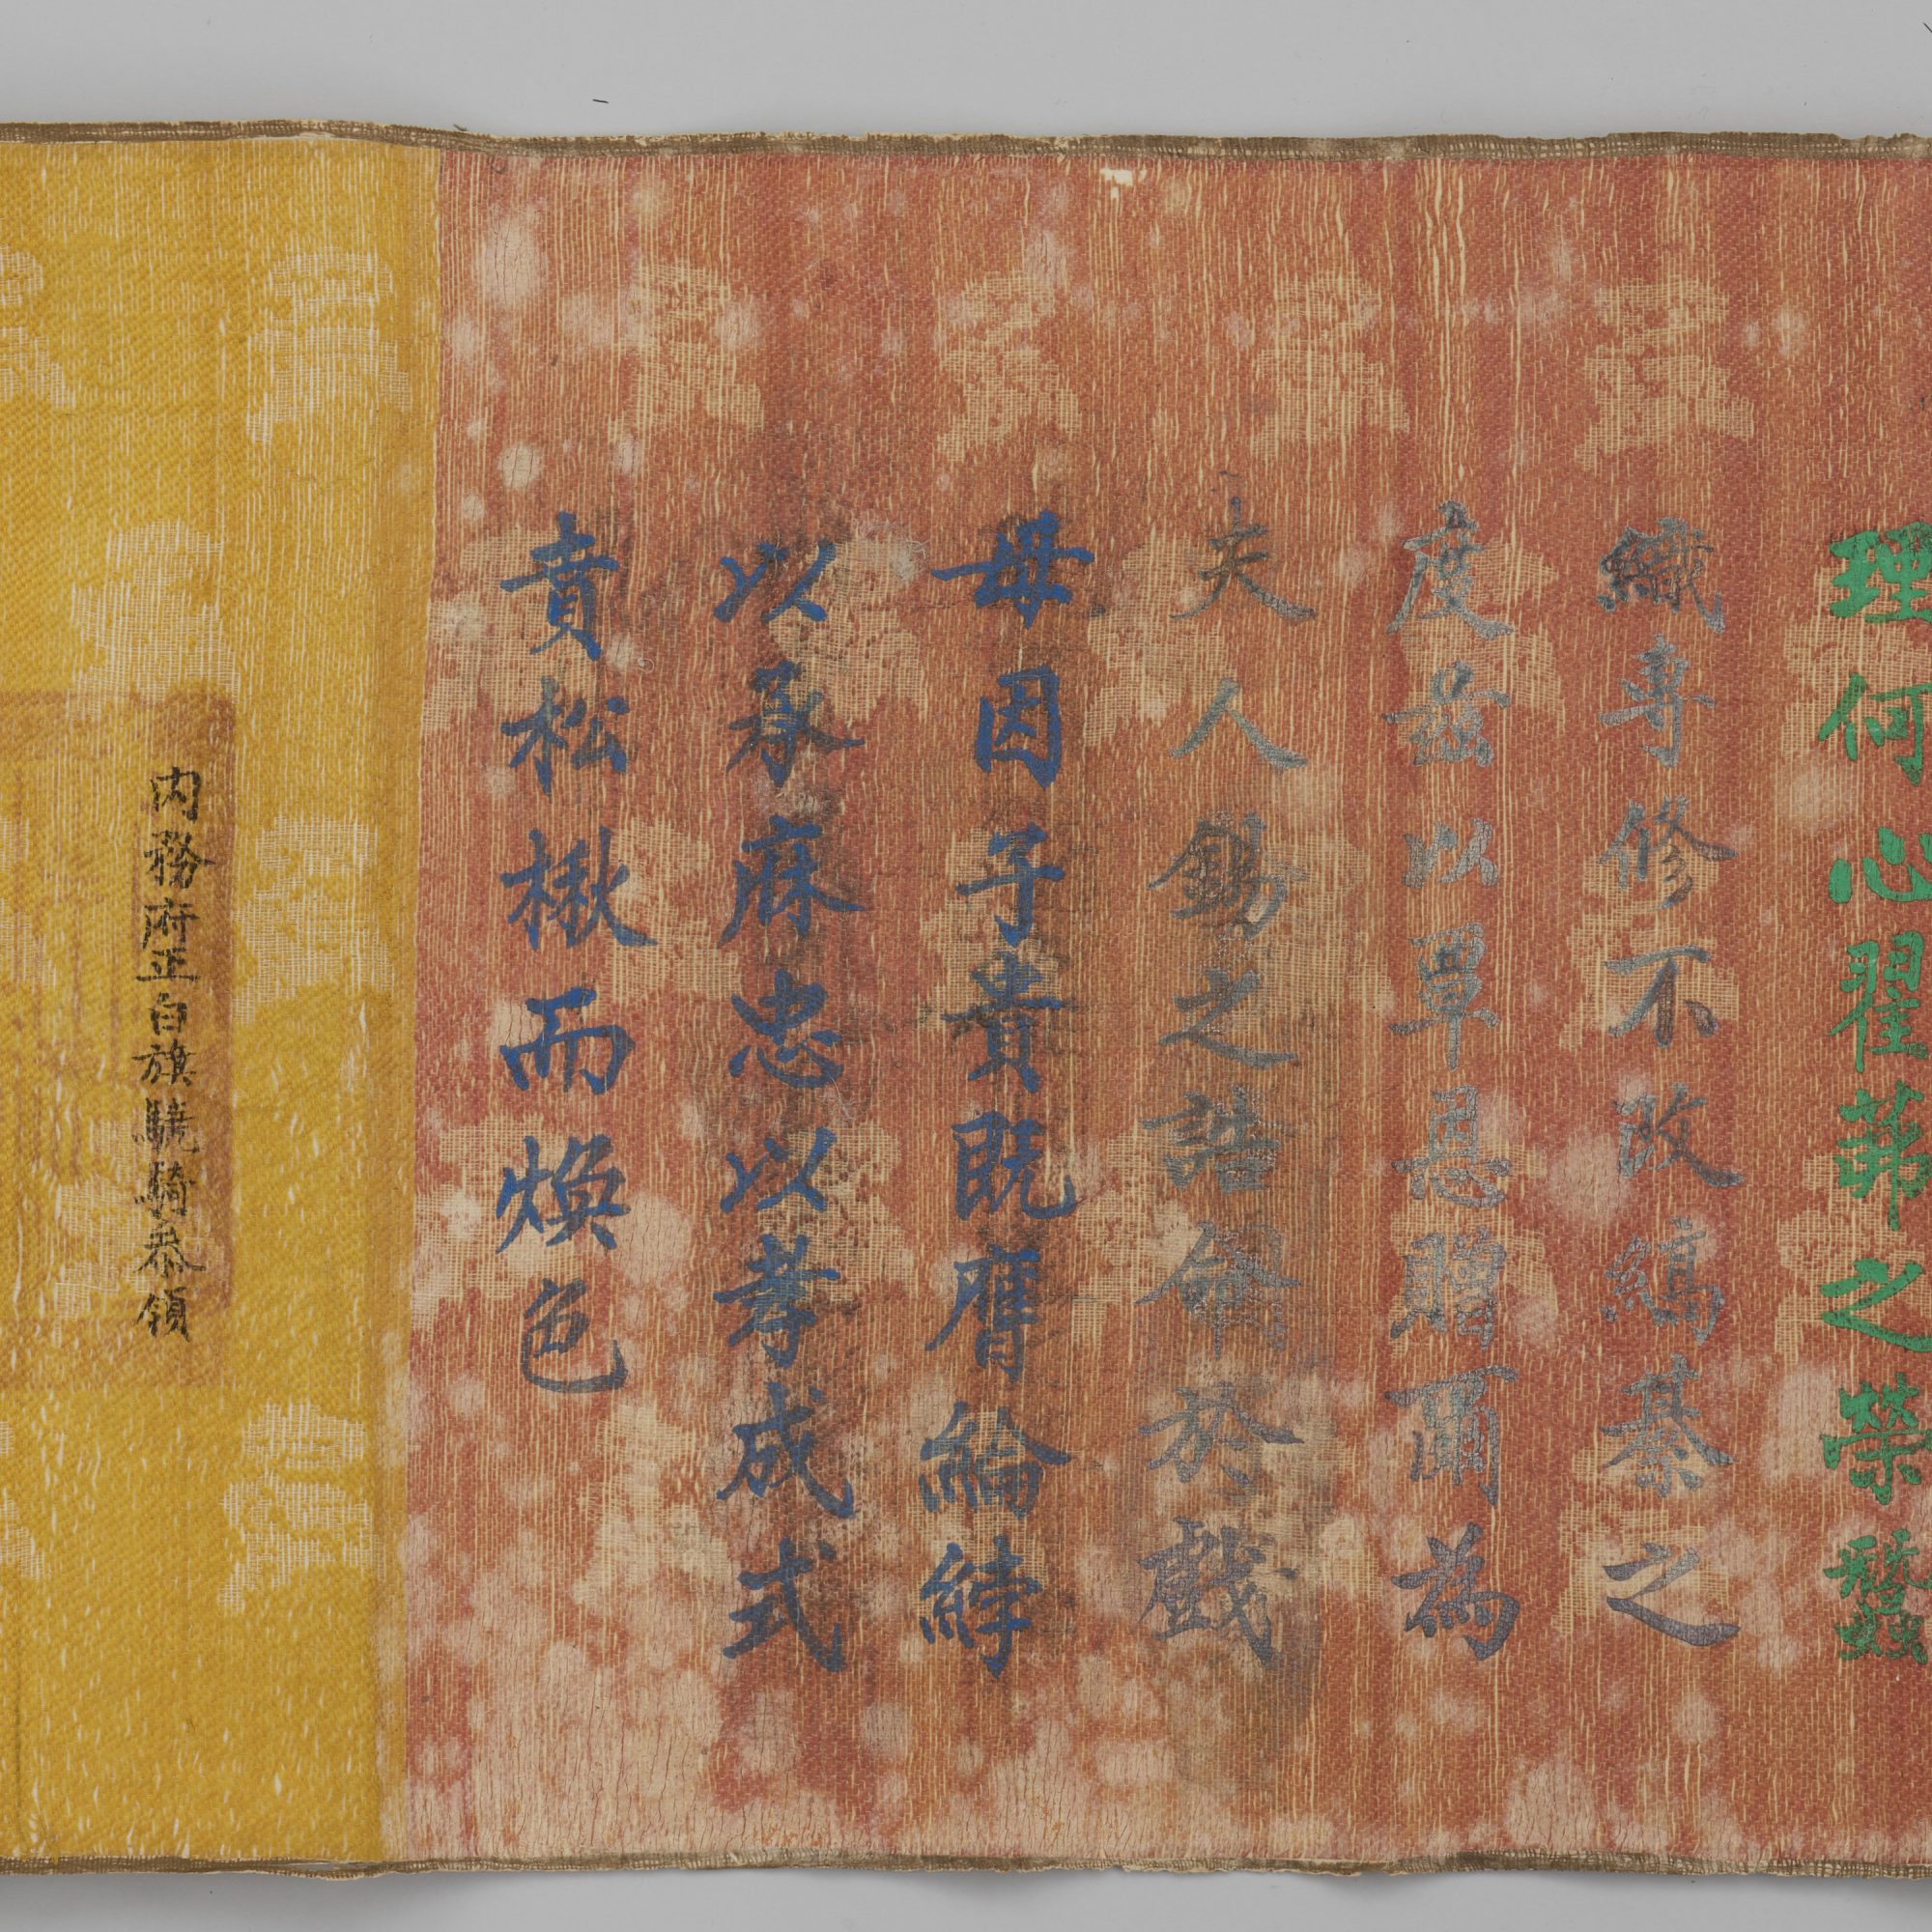 理何心翟茀之榮蠶
織專修不改縞綦之
度茲以覃恩贈爾為
夫人錫之誥命於戲
母因子貴既膺綸綍
以承庥忠以孝成式
賁松楸而煥色
内務府正白旗驍騎恭領